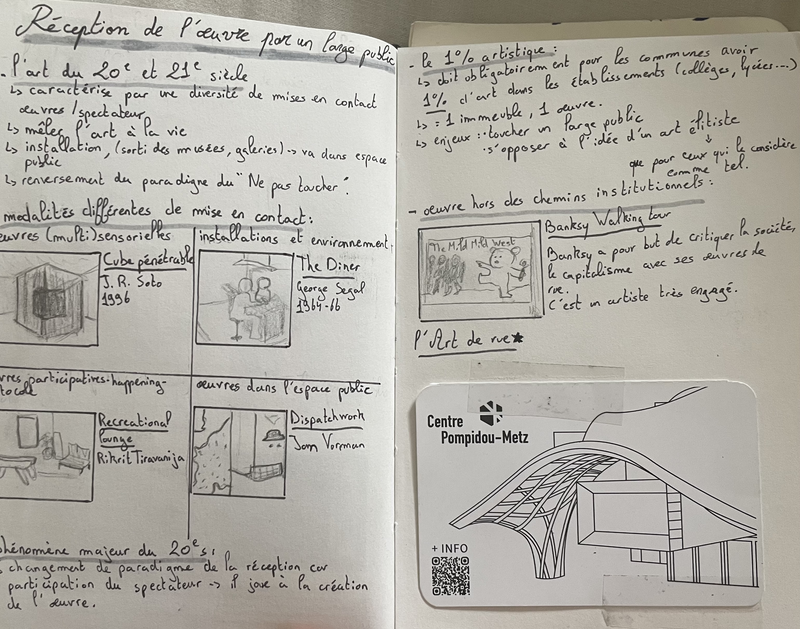 Réception de l'œuvre par un large public
- l'art du 20e et 21e siècle
↳ caractérise par une diversité de mises en contact
œuvres / spectateur
↳ mêler l'art à la vie
↳ installation, (sorti des musées, galeries) -> va dans espace
public
↳ renversement du paradigme du "Ne pas toucher".
modalités différentes de mise en contact:
œuvres (multi)sensorielles
Cube pénétrable
J. R. Soto
1996
installations et environnement:
The Diner
George Segal
1964-66
participatives-happening-
Recreational
lounge
Rikrit Tiravanija
œuvres dans l'espace public
Dispatchwork
Jam Vorman
phénomène majeur du 20e s:
changement de paradigme de la réception car
participation du spectateur -> il joue à la création
de l'œuvre.
- le 1% artistique:
↳ doit obligatoirement pour les communes avoir
1% d'art dans les établissements (collèges, lycées...)
↳ = 1 immeuble, 1 œuvre.
↳ enjeux: · toucher un large public
· s'opposer à l'idée d'un art élitiste
↓
que pour ceux qui le considère
comme tel.
- œuvre hors des chemins institutionnels:
The Mild Mild West
Banksy Walking tour
Banksy a pour but de critiquer la société,
le capitalisme avec ses œuvres de
rue.
C'est un artiste très engagé.
l'Art de rue★
Centre
Pompidou-Metz
+ INFO